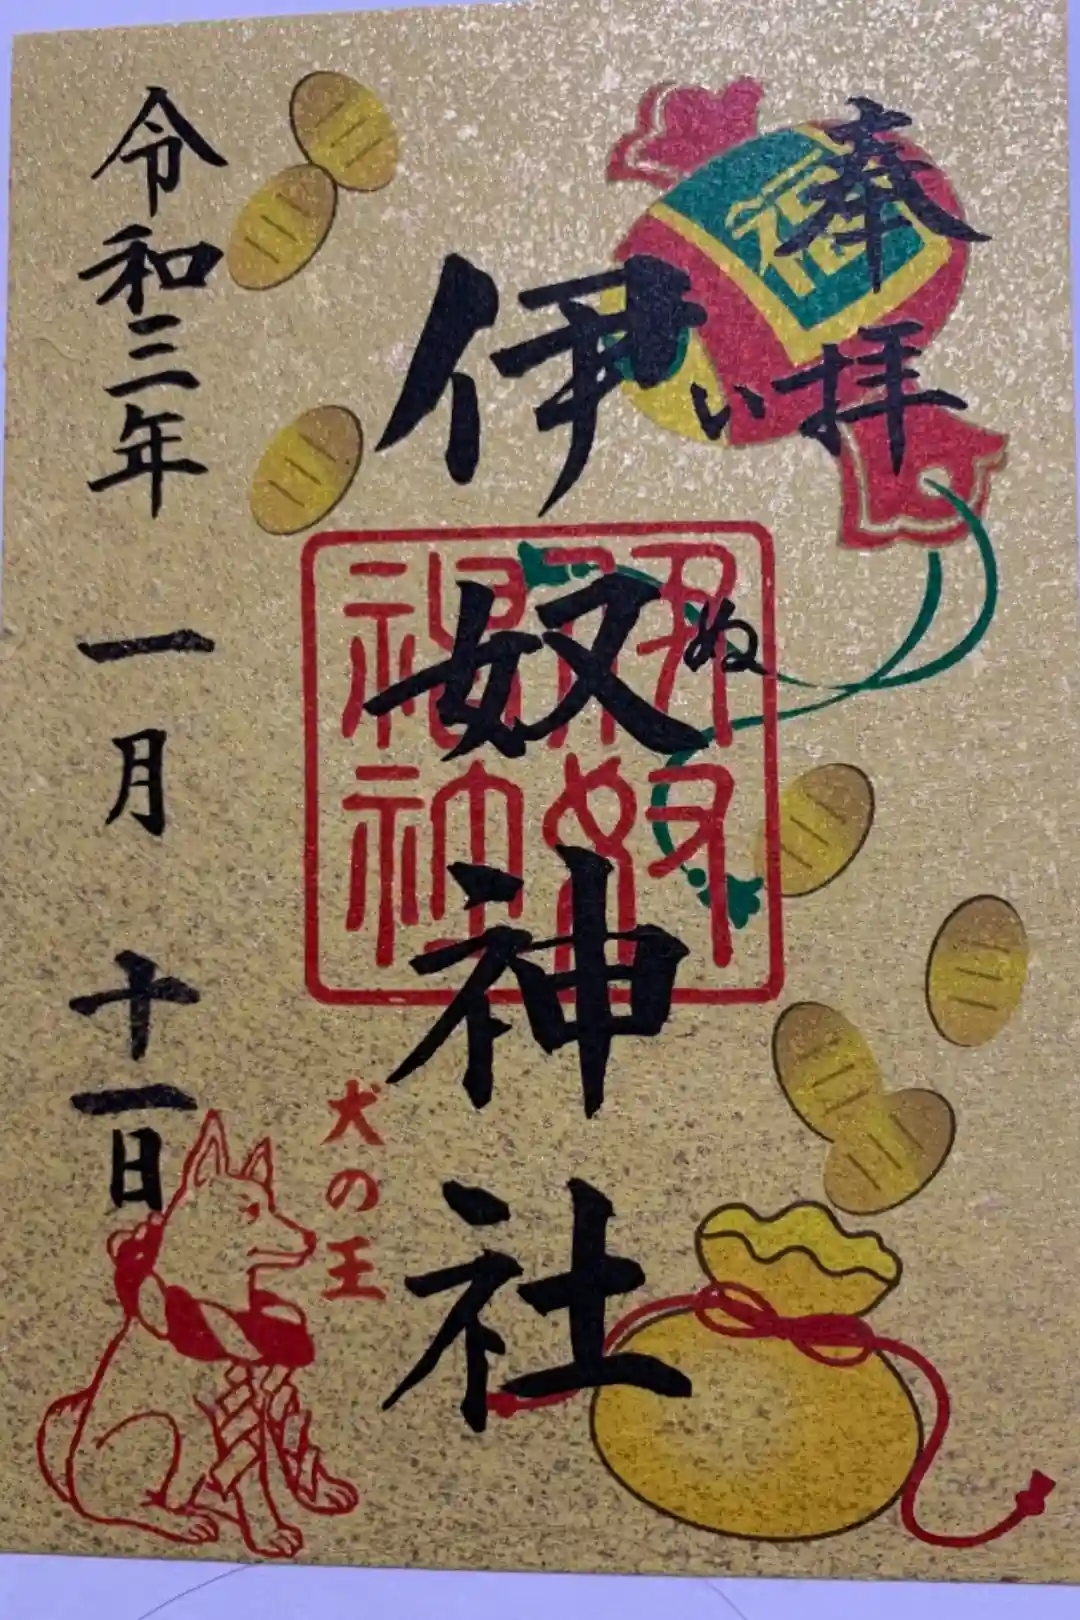 奉拝
福
伊奴神社
いぬ
伊奴
神社
犬の王
令和三年一月十一日